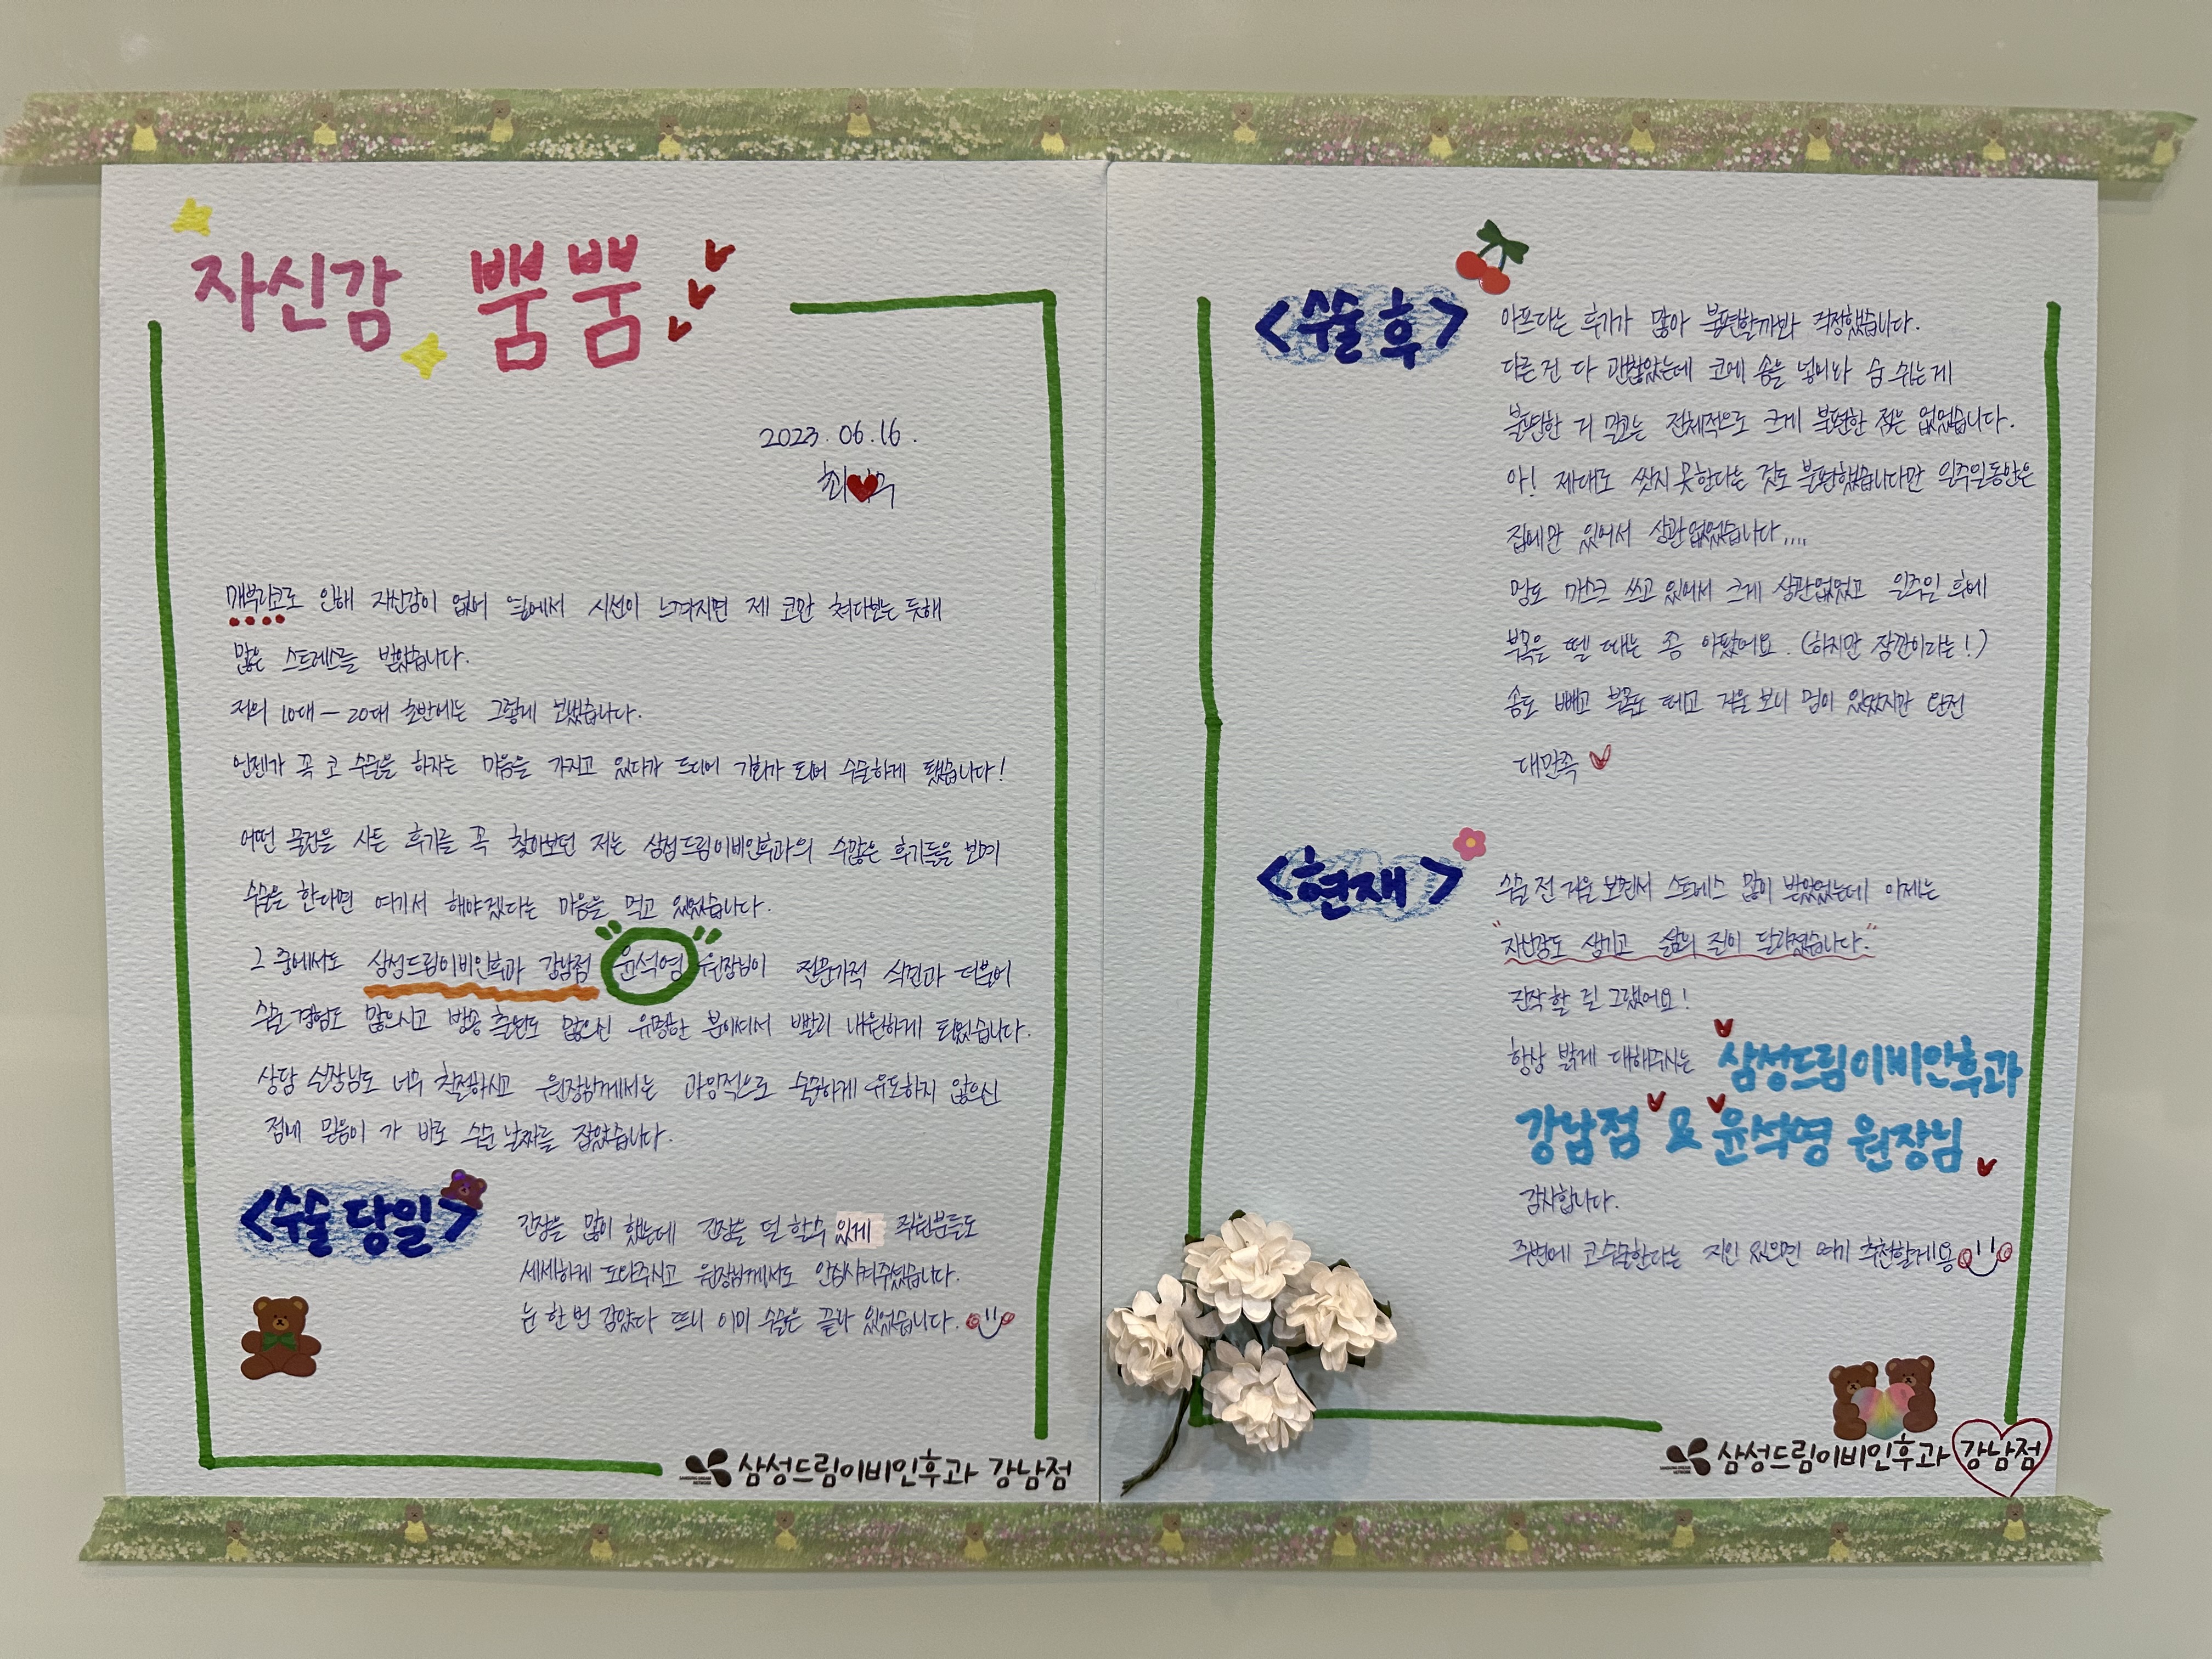 자신감 뿜뿜
2023. 06. 16.
최
매부리코로 인해 자신감이 없어 옆에서 시선이 느껴지면 제 코만 쳐다보는 듯해
많은 스트레스를 받았습니다.
저의 10대 - 20대 초반에는 그렇게 보냈습니다.
언젠가 꼭 코 수술을 하자는 마음을 가지고 있다가 드디어 기회가 되어 수술하게 됐습니다!
어떤 물건을 사든 후기를 꼭 찾아보던 저는 삼성드림이비인후과의 수많은 후기들을 보며
수술을 한다면 여기서 해야겠다는 마음을 먹고 있었습니다.
그 중에서도 삼성드림이비인후과 강남점 윤석영 원장님이 전문가적 식견과 더불어
수술 경험도 많으시고 방송 출연도 많으신 유명한 분이셔서 빨리 내원하게 되었습니다.
상담 실장님도 너무 친절하시고 원장님께서는 과잉적으로 수술하게 유도하지 않으신
점에 믿음이 가 바로 수술 날짜를 잡았습니다.
<수술 당일>
긴장을 많이 했는데 긴장을 덜 할수 있게 직원분들도
세세하게 도와주시고 원장님께서도 안심시켜주셨습니다.
눈 한 번 감았다 뜨니 이미 수술은 끝나 있었습니다.
삼성드림이비인후과 강남점
<수술 후>
아프다는 후기가 많아 불편할까봐 걱정했습니다.
다른 건 다 괜찮았는데 코에 솜을 넣어놔 숨 쉬는게
불편한 거 말고는 전체적으로 크게 불편한 점은 없었습니다.
아! 제대로 씻지 못한다는 것도 불편했습니다만 일주일동안은
집에만 있어서 상관없었습니다....
멍도 마스크 쓰고 있어서 크게 상관없었고 일주일 후에
부목을 뗄 때는 좀 아팠어요. (하지만 잠깐이라는!)
솜도 빼고 부목도 떼고 거울 보니 멍이 있었지만 완전
대만족
<현재>
수술 전 거울 보면서 스트레스 많이 받았었는데 이제는
"자신감도 생기고 삶의 질이 달라졌습니다."
진작 할 걸 그랬어요!
항상 밝게 대해주시는 삼성드림이비인후과
강남점 & 윤석영 원장님
감사합니다.
주변에 코수술한다는 지인 있으면 여기 추천할게용
삼성드림이비인후과 강남점